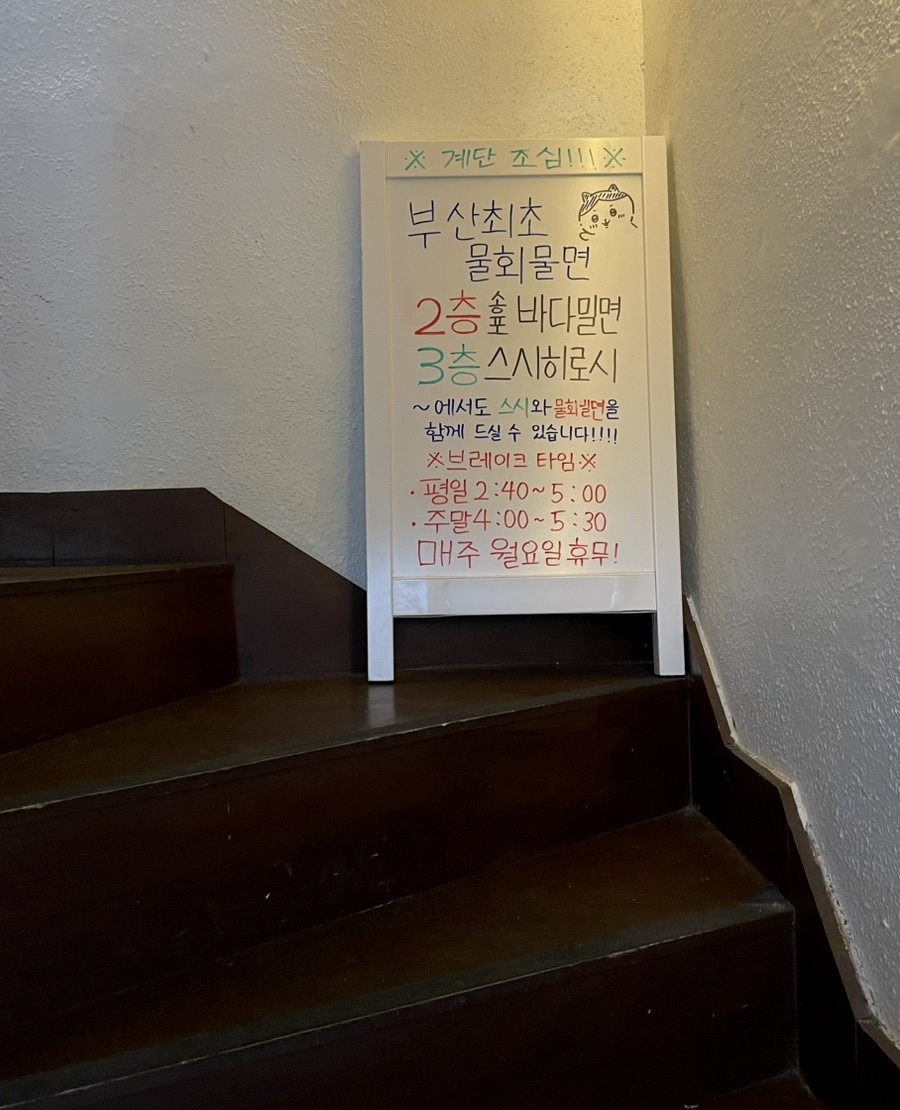 ※ 계단 조심!!! ※
부산최초
물회물면
2층 송포 바다밀면
3층 스시히로시
~에서도 스시와 물회밀면을
함께 드실 수 있습니다!!!!
※브레이크 타임※
· 평일 2:40~5:00
· 주말 4:00~5:30
매주 월요일 휴무!